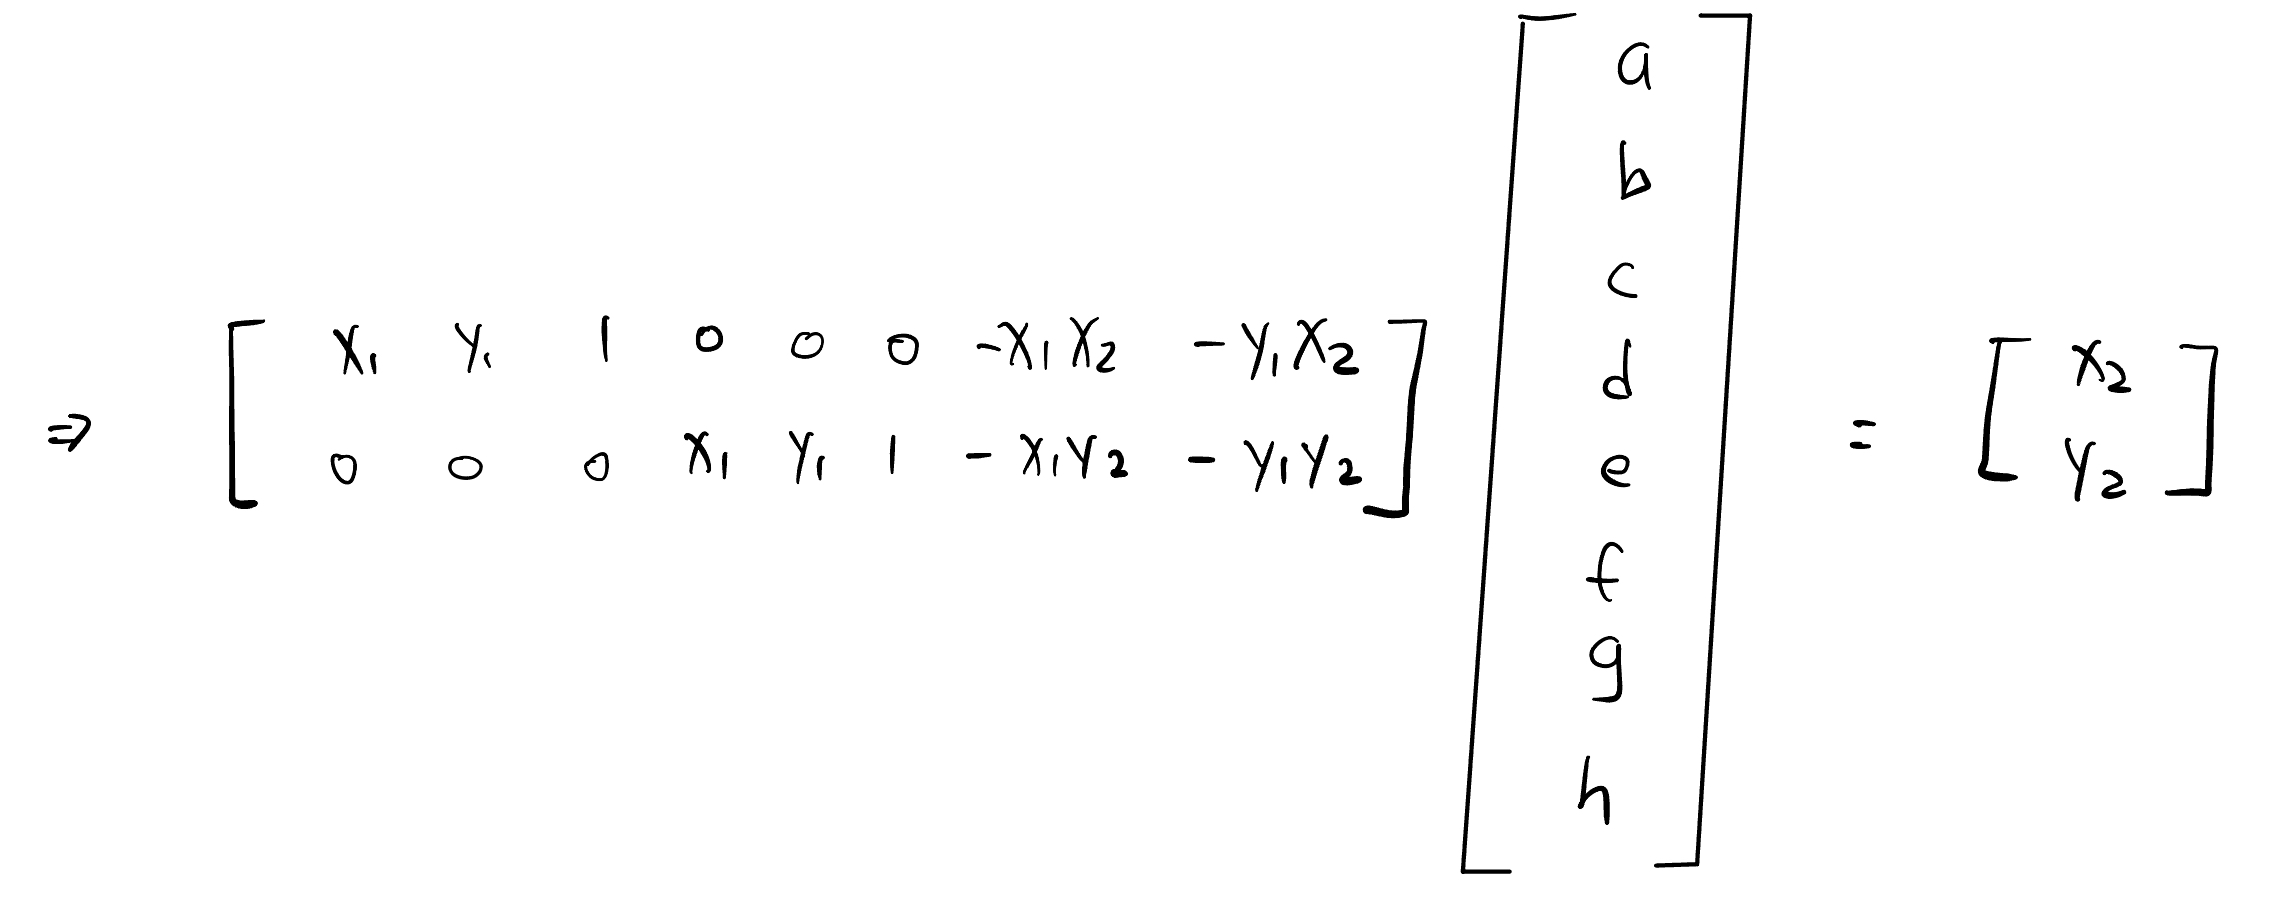 ⇒ [ x₁ y₁ 1 0 0 0 -x₁x₂ -y₁x₂ ; 0 0 0 x₁ y₁ 1 -x₁y₂ -y₁y₂ ] [ a ; b ; c ; d ; e ; f ; g ; h ] = [ x₂ ; y₂ ]